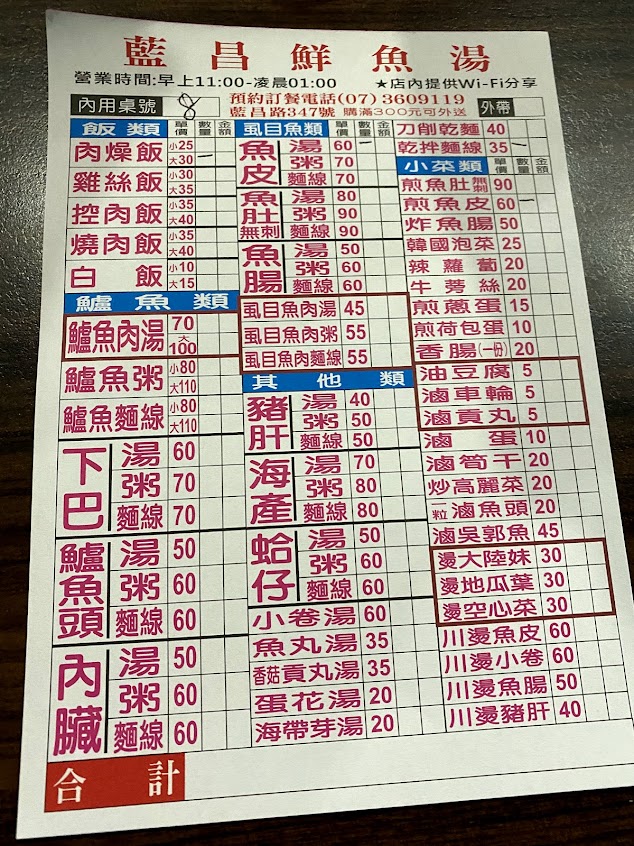 藍昌鮮魚湯
營業時間:早上11:00-凌晨01:00 ★店內提供Wi-Fi分享
內用桌號 8 預約訂餐電話(07)3609119 外帶
藍昌路347號 購滿300元可外送
飯類 單價 數量 金額
肉燥飯 小25 大30 一
雞絲飯 小30 大35
控肉飯 小35 大40
燒肉飯 小35 大40
白飯 小10 大15
鱸魚類
鱸魚肉湯 70 大100
鱸魚粥 小80 大110
鱸魚麵線 小80 大110
下巴 湯 60
粥 70
麵線 70
鱸魚頭 湯 50
粥 60
麵線 60
內臟 湯 50
粥 60
麵線 60
合計
虱目魚類 單價 數量 金額
魚皮 湯 60 一
粥 70
麵線 70
魚肚無刺 湯 80
粥 90
麵線 90
魚腸 湯 50
粥 60
麵線 60
虱目魚肉湯 45
虱目魚肉粥 55
虱目魚肉麵線 55
其他類
豬肝 湯 40
粥 50
麵線 50
海產 湯 70
粥 80
麵線 80
蛤仔 湯 50
粥 60
麵線 60
小卷湯 60
魚丸湯 35
香菇貢丸湯 35
蛋花湯 20
海帶芽湯 20
刀削乾麵 40
乾拌麵線 35 一
小菜類 單價 數量 金額
煎魚肚無刺 90
煎魚皮 60 一
炸魚腸 50
韓國泡菜 25
辣蘿蔔 20
牛蒡絲 20
煎蔥蛋 15
煎荷包蛋 10
香腸(一份) 20
油豆腐 5
滷車輪 5
滷貢丸 5
滷蛋 10
滷筍干 20
炒高麗菜 20
粒滷魚頭 20
滷吳郭魚 45
燙大陸妹 30
燙地瓜葉 30
燙空心菜 30
川燙魚皮 60
川燙小卷 60
川燙魚腸 50
川燙豬肝 40